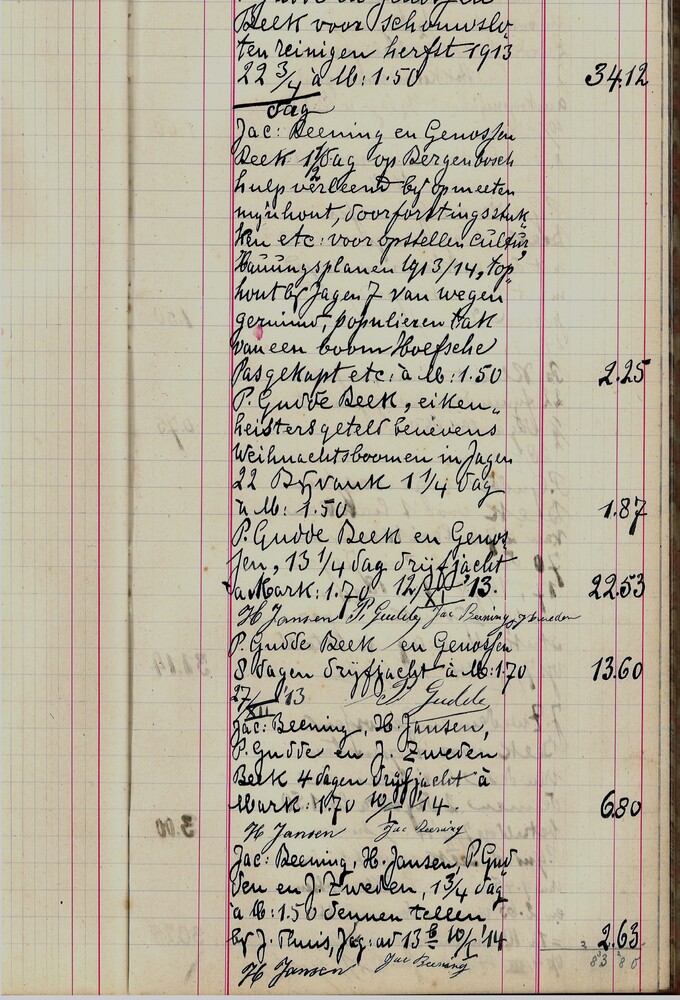 Beek voor schouwslo„
ten reinigen herfst 1913
22 3/4 à M: 1.50 34.12
dag
Jac: Beening en Genossen
Beek 1 1/2 dag op Bergerbosch
hulp verleend bij opmeeten
mijnhout, doorforstingsstuk„
ken etc: voor opstellen cultur„
Hauungsplanen 1913/14, top„
hout bij Jagen 7 van wegen
geruimd, populieren tak
van een boom Hoefsche
Pas gekapt etc: à M: 1.50 2.25
P. Gudde Beek, eiken„
heisters geteld benevens
Weihnachtsboomen in Jagen
22 Bijvank 1 1/4 dag
à M: 1.50 1.87
P. Gudde Beek en Genos„
sen, 13 1/4 dag drijfjacht
à Mark: 1.70 12/XI '13. 22.53
H Jansen P. Gudde Jac Beening J Zweeden
P. Gudde Beek en Genossen
8 dagen drijfjacht à M: 1.70 13.60
27/XII '13 P Gudde
Jac: Beening, H. Jansen,
P. Gudde en J. Zweden
Beek 4 dagen drijfjacht à
Mark: 1.70 10/I '14. 6.80
H Jansen Jac Beening
Jac: Beening, H. Jansen, P. Gud„
den en J. Zweden, 1 3/4 dag
à M: 1.50 dennen tellen
bij J. Thuis, Jag: ad 13 b 10/I '14 2.63
H Jansen Jac Beening